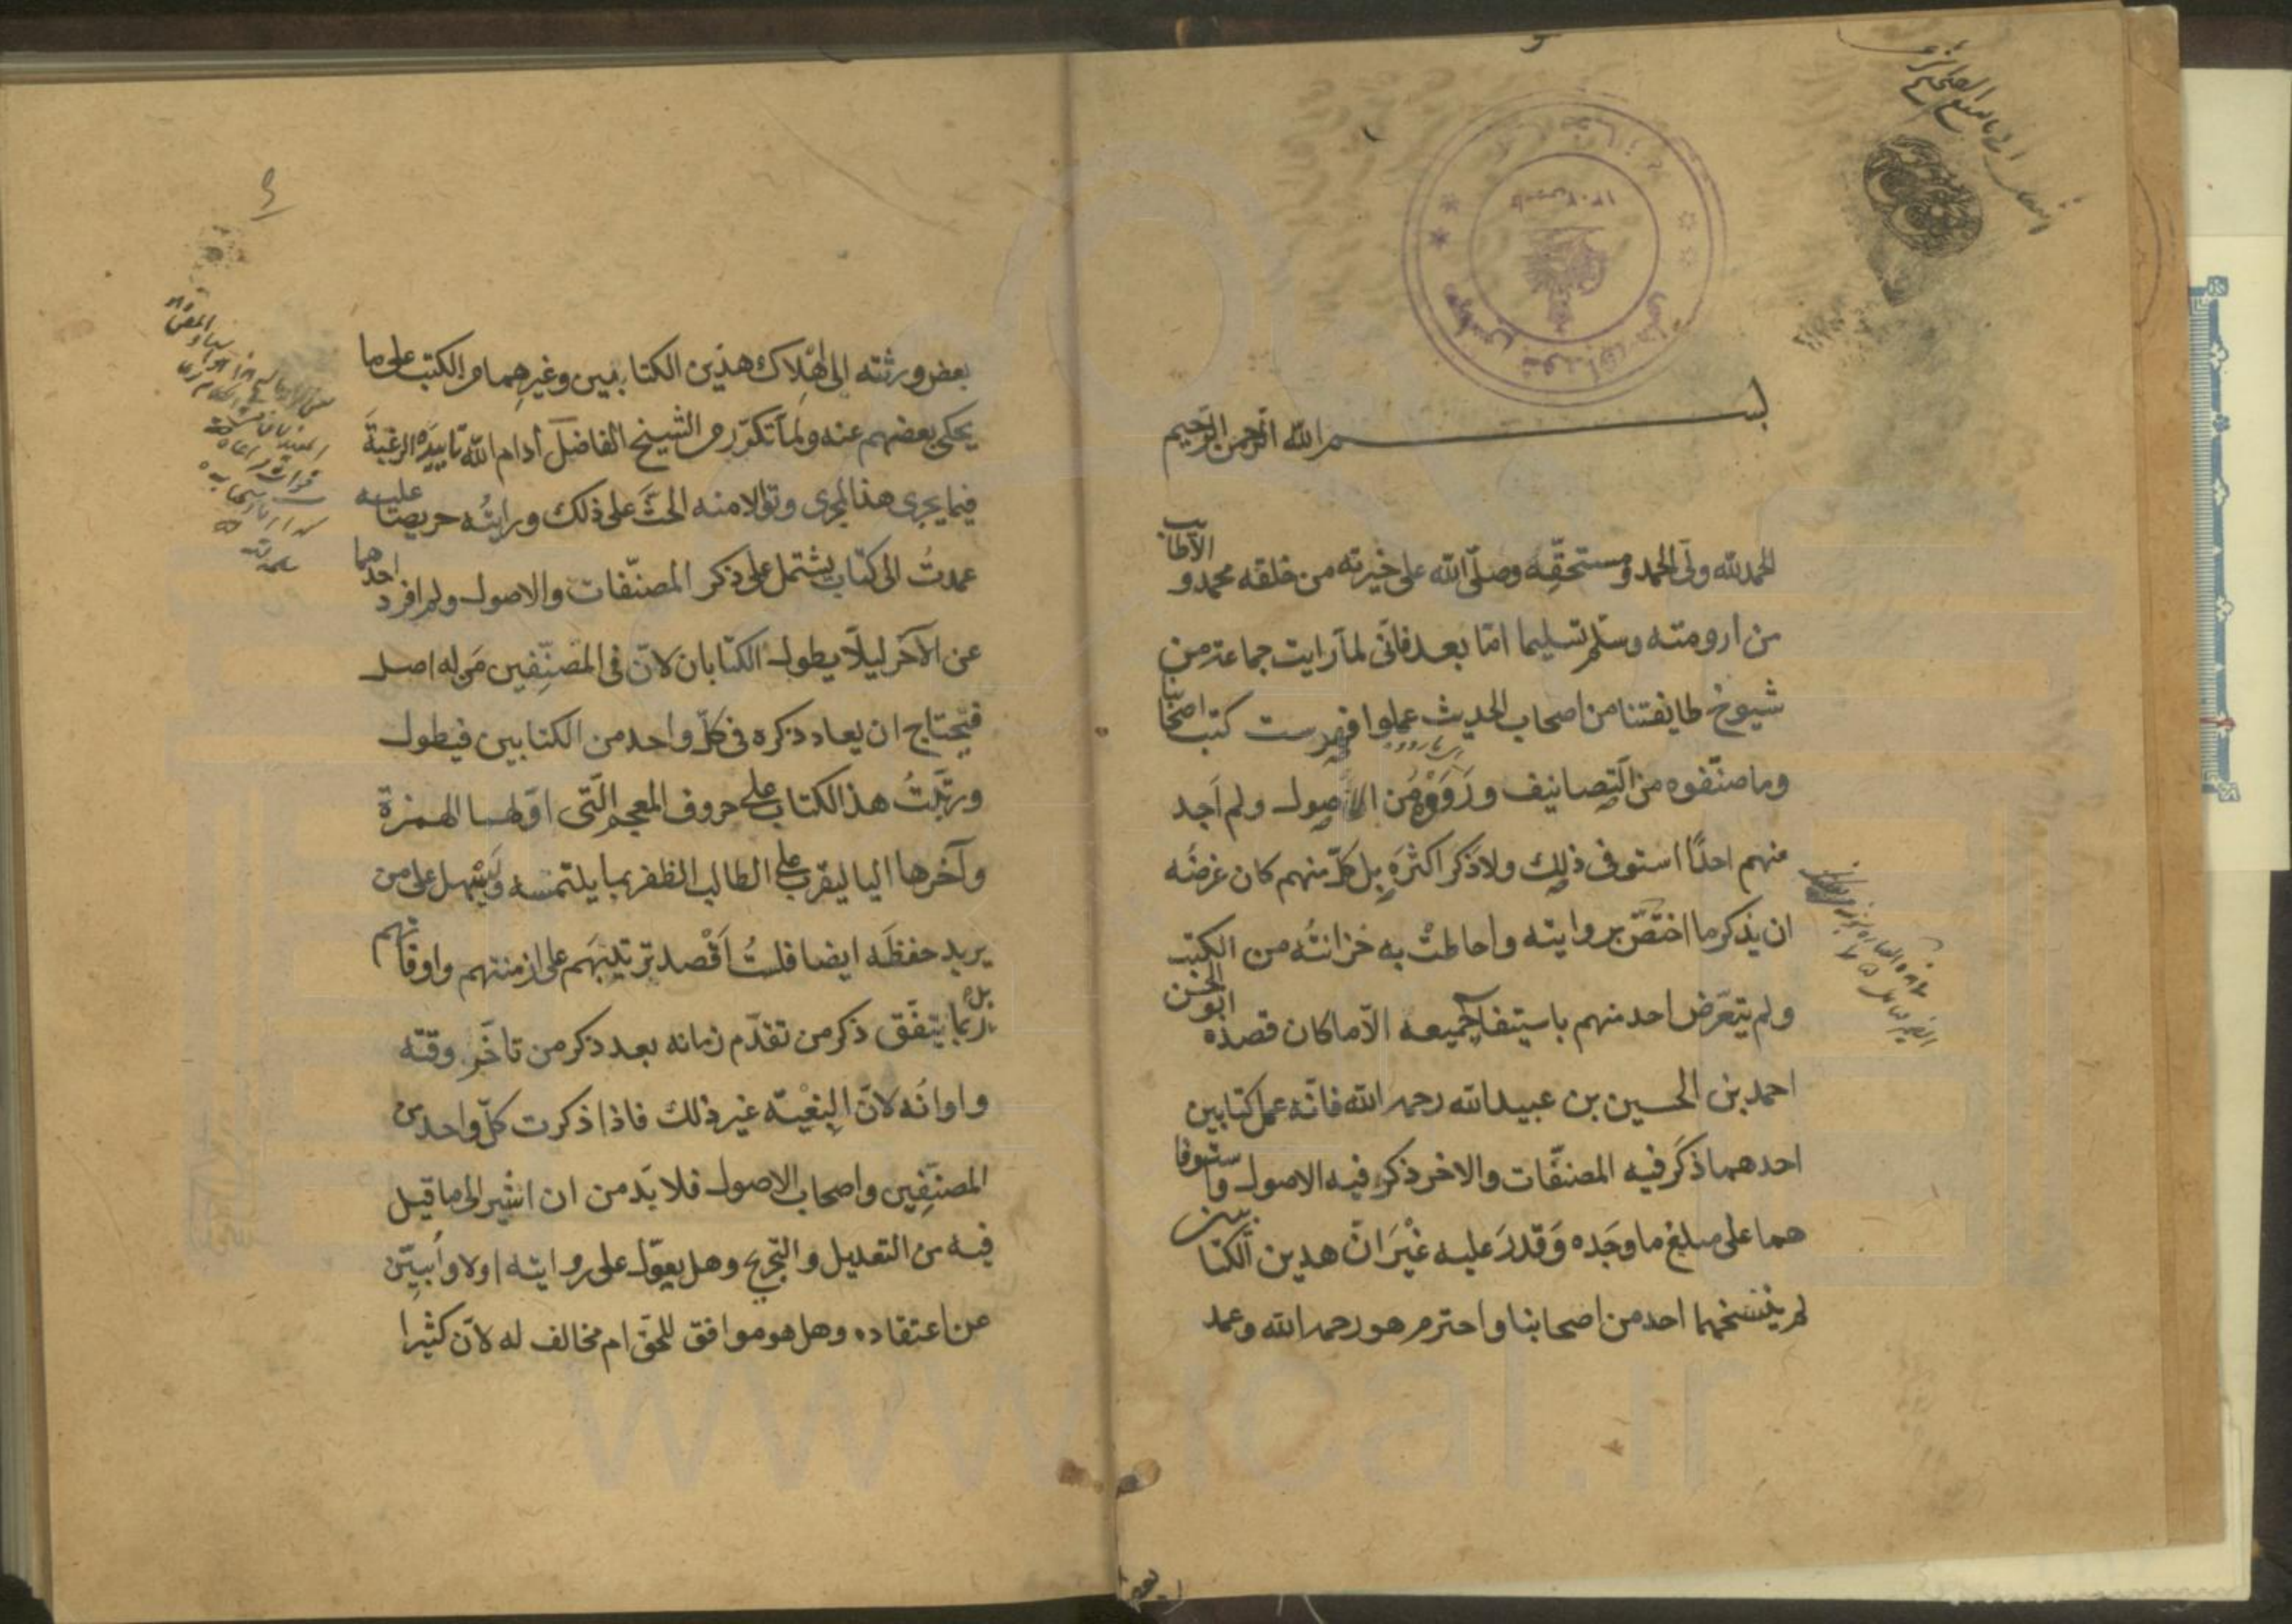 بسم الله الرحمن الرحيم
الحمدلله ولىّ الحمد ومستحقّه وصلّى الله على خيرته من خلقه محمد و الاطايب
من ارومته وسلّم تسليما امّا بعد فانّى لمّا رايت جماعة من
شيوخ طايفتنا من اصحاب الحديث عملوا فهرست كتب اصحابنا
وما صنّفوه من التصانيف ورَوَوْه من الاصول ولم اَجد
منهم احدًا استوفى ذلك ولا ذكر اكثره بل كلّ منهم كان غرضه
ان يذكر ما اختصّ بروايته واحاطت به خزانتُه من الكتب
ولم يتعرّض احد منهم باستيفا جميعه الّا ما كان قصده ابو الحسن
احمد بن الحسين بن عبيدالله رحمه الله فانّه عمل كتابين
احدهما ذكَر فيه المصنّفات والاخر ذكر فيه الاصول واستوفا
هما على مبلغ ما وجَده وَقدرَ عليه غيْرَ انّ هدين الكتابين
لم ينسخهما احد من اصحابنا واحترم هو رحمه الله وعمد
بعض
بعض ورثته الى اهْلِاك هذين الكتابين وغيرِهما من الكتب على ما
يحكى بعضهم عنه ولمّا تكرّر من الشيخ الفاضل أدام الله تاييدَه الرغبةَ
فيما يجرى هذا المجرى وتوالا منه الحثَّ على ذلك ورايتُه حريصا عليه
عمدتُ الى كتاب يشتمل على ذكر المصنّفات والاصول ولم افرد احدهما
عن الآخر ليلّا يطول الكتابان لانّ فى المصّنِّفين مَن له اصل
فيحتاج ان يعاد ذكره فى كلّ واحد من الكتابين فيطول
ورتّبتُ هذا الكتاب على حروف المعجم الّتى اوّلها الهمزة
وآخرها اليا ليقرب على الطالب الظفر بما يلتمسه ويَسْهل على من
يريد حفظَه ايضا فلستُ اَقْصد ترتيبَهم على ازمنتهم واوقاتهم
بل ربّما يتفّق ذكر من تقدّم زمانه بعد ذكر من تاخّر وقته
واوانُه لانّ البغيْة غير ذلك فاذا ذكرت كلّ واحد من
المصنّفِين واصحاب الاصول فلا بدّ من ان اشير الى ما قيل
فيه من التعديل والتجريح وهل يعوّل على روايته اولا واُبيّن
عن اعتقاده وهل هو موافق للحقّ ام مخالف له لانّ كثيرا